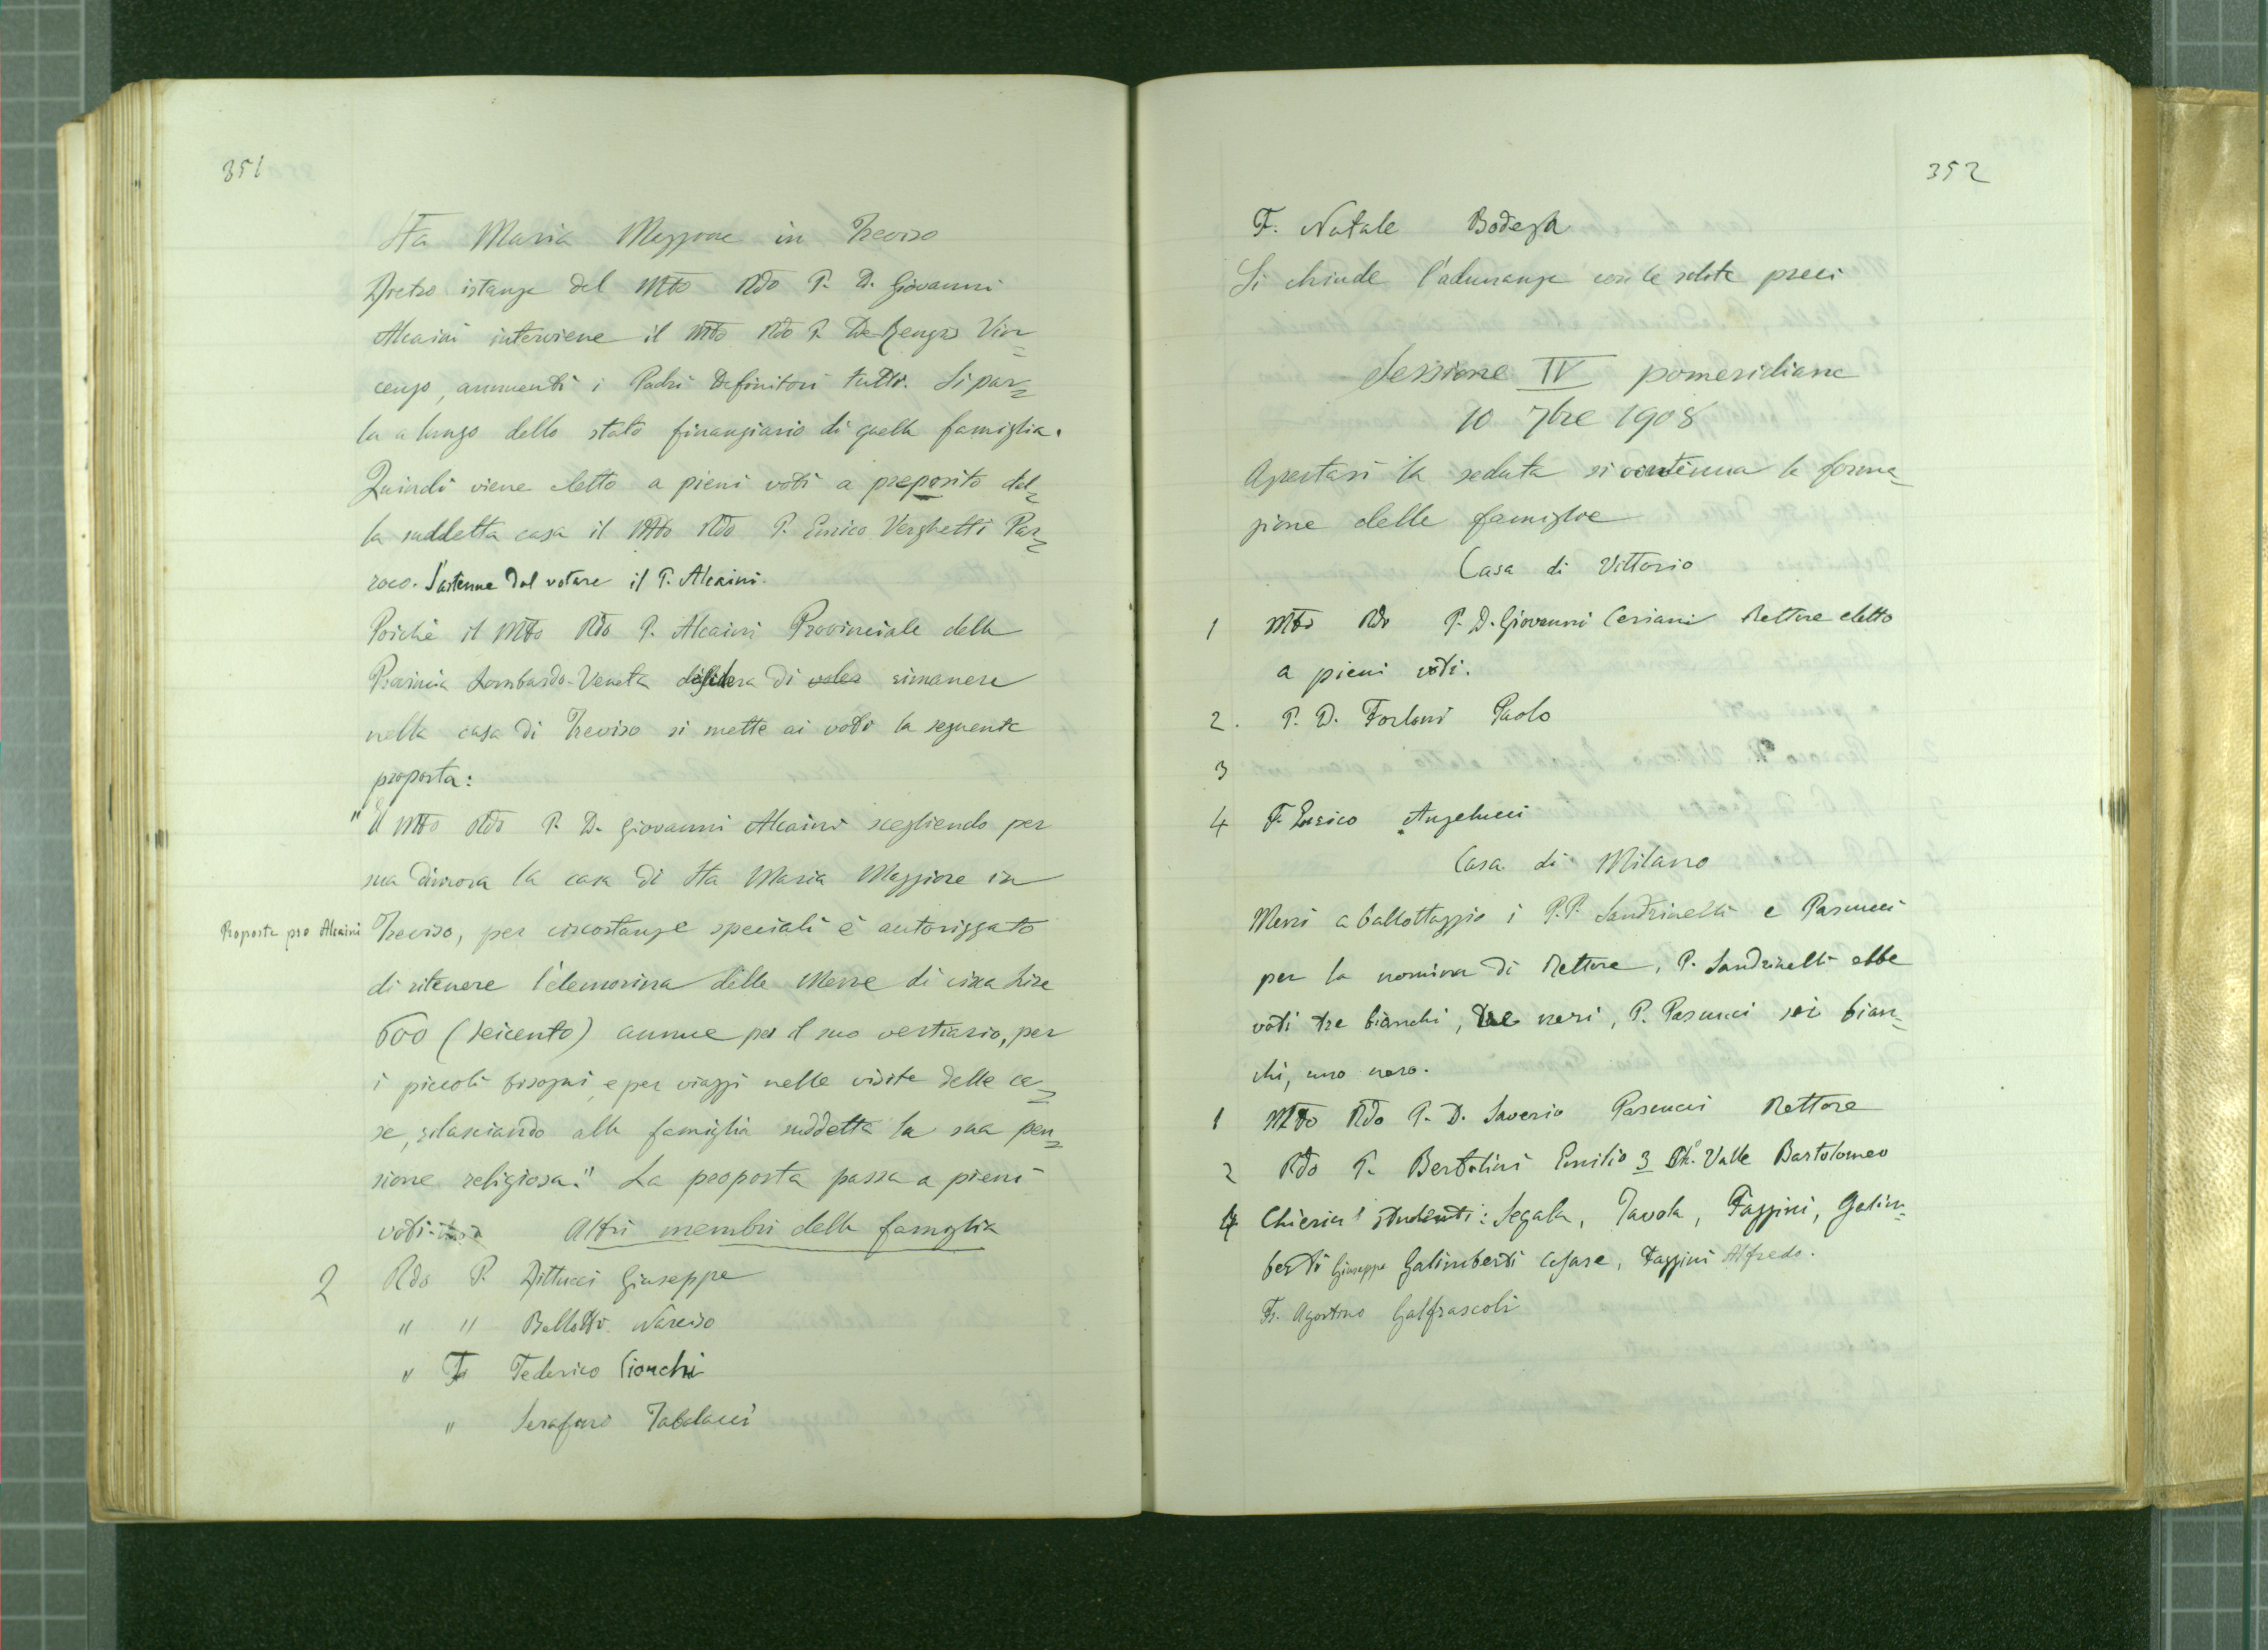 351
Sta Maria Maggiore in Treviso
Dietro istanza del Mto Rdo P. D. Giovanni
Alcaini interviene il Mto Rdo P. De Renzis Vin=
cenzo, annuenti i Padri Definitori tutti. Si par=
la a lungo dello stato finanziario di quella famiglia.
Quindi viene eletto a pieni voti a preposito del=
la suddetta casa il Mto Rdo P. Enrico Verghetti Par=
roco. S'astenne dal votare il P. Alcaini.
Poichè il Mto Rdo P. Alcaini Provinciale della
Provincia Lombardo-Veneta desidera di voler rimanere
nella casa di Treviso si mette ai voti la seguente
proposta:
"Il Mto Rdo P. D. Giovanni Alcaini scegliendo per
sua dimora la casa di Sta Maria Maggiore in
Proposta pro Alcaini
Treviso, per circostanze speciali è autorizzato
di ritenere l'elemosina delle Messe di circa Lire
600 (seicento) annue per il suo vestiario, per
i piccoli bisogni, e per viaggi nelle visite delle ca=
se, rilasciando alla famiglia suddetta la sua pen=
sione religiosa." La proposta passa a pieni
voti. Altri membri della famiglia
2 Rdo P. Pittucci Giuseppe
" " Bellotto Narciso
" Fr Federico Cionchi
" Serafino Tabolacci
352
F. Natale Bodega
Si chiude l'adunanza con le solite preci
Sessione IV pomeridiana
10 7bre 1908
Apertasi la seduta si continua la forma=
zione delle famiglie
Casa di Vittorio
1 Mto Rdo P. D. Giovanni Ceriani Rettore eletto
a pieni voti.
2. P. D. Forlani Paolo
3
4 F. Enrico Angelucci
Casa di Milano
Messi a ballottaggio i P.P. Sandrinelli e Pascucci
per la nomina di Rettore, P. Sandrinelli ebbe
voti tre bianchi, tre neri, P. Pascucci sei bian=
chi, uno nero.
1 Mto Rdo P. D. Saverio Pascucci Rettore
2 Rdo P. Bertolini Emilio 3 Ch. Valle Bartolomeo
4 Chierici studenti: Segala, Tavola, Fazzini, Galim=
berti Giuseppe Galimberti Cesare, Fazzini Alfredo.
Fr. Agostino Galfrascoli